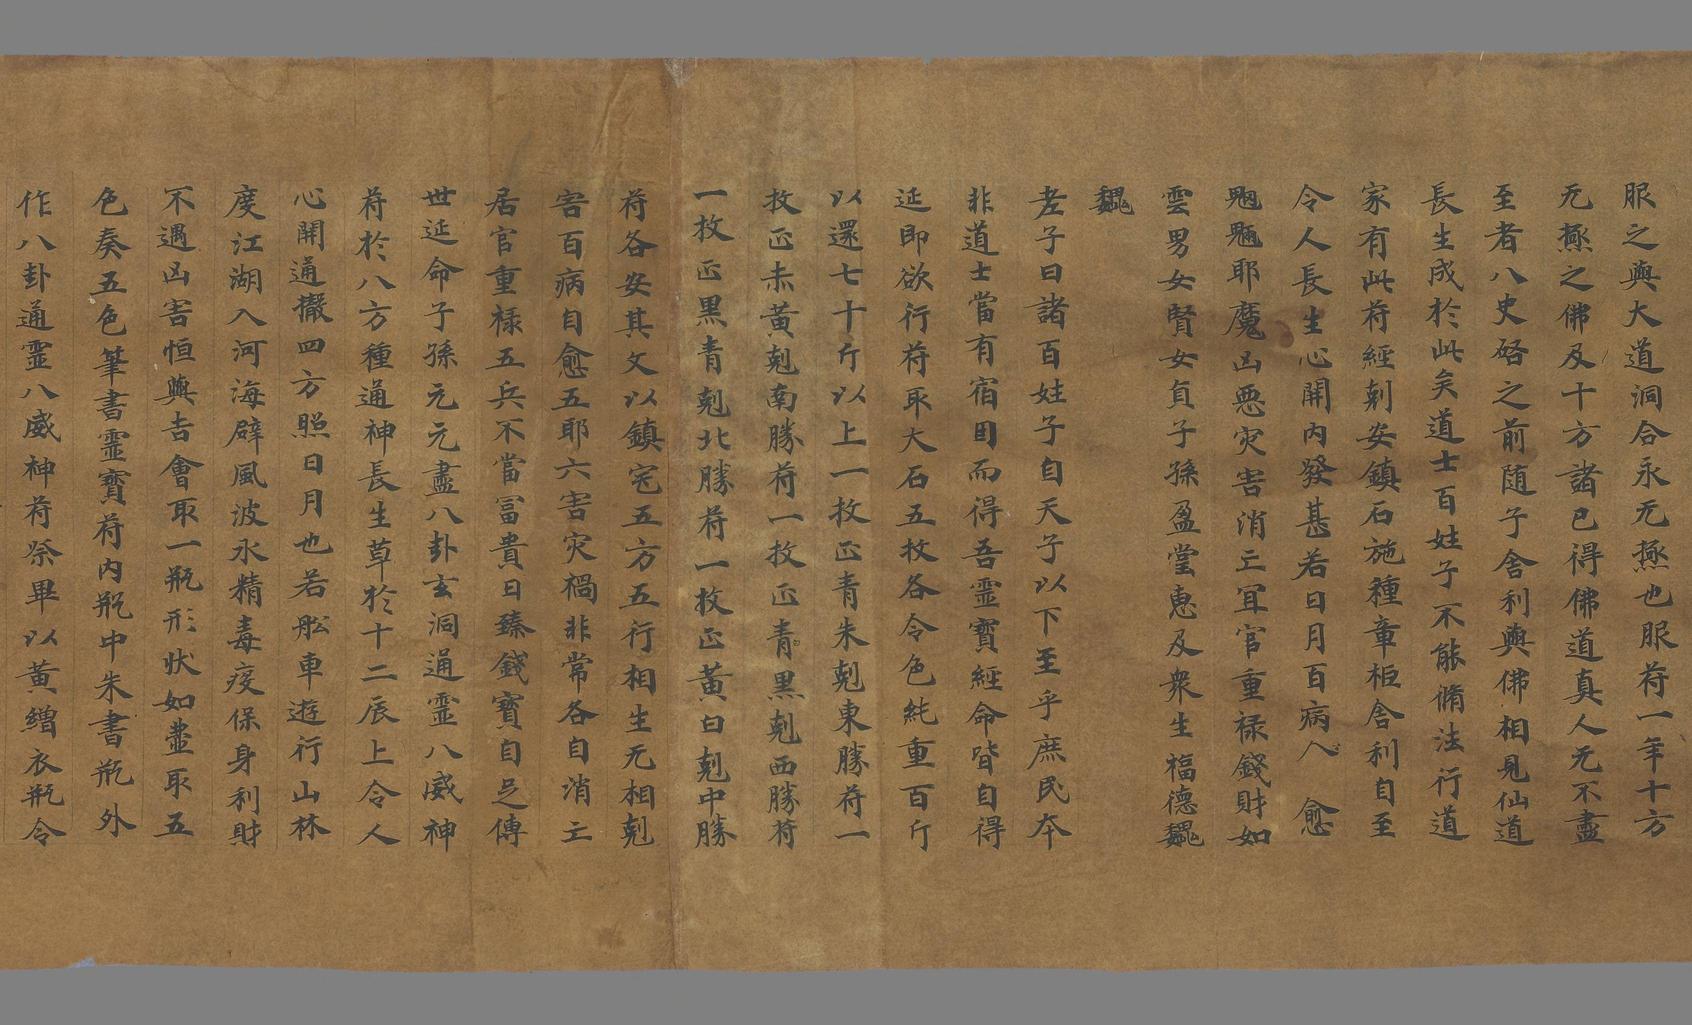 服之與大道洞合永无極也服苻一年十方
无極之佛及十方諸已得佛道真人无不盡
至者八史啓之前随子舍利與佛相見仙道
長生成於此矣道士百姓子不能脩法行道
家有此苻經剋安鎮石施種章柜舍利自至
令人長生心開内發甚若日月百病入愈
魍魎耶魔凶惡灾害消亡冝官重禄錢財如
雲男女賢女貞子孫盈堂惠及衆生福德巍
巍
老子曰諸百姓子自天子以下至乎庶民夲
非道士當有宿因而得吾靈寶經命皆自得
延即欲行苻取大石五枚各令色純重百斤
以還七十斤以上一枚正青朱剋東勝苻一
枚正赤黃剋南勝苻一枚正青黒剋西勝苻
一枚正黒青剋北勝苻一枚正黃白剋中勝
苻各安其文以鎮宅五方五行相生无相剋
害百病自愈五耶六害灾禍非常各自消亡
居官重禄五兵不當冨貴日臻錢寶自足傳
世延命子孫元元盡八卦玄洞通靈八威神
苻於八方種通神長生草於十二辰上令人
心開通撤四方照日月也若舩車遊行山林
度江湖入河海辟風波水精毒疫保身利財
不遇凶害恒與吉會取一瓶形状如壷取五
色奏五色筆書靈寶苻内瓶中朱書瓶外
作八卦通靈八威神苻祭畢以黃繒衣瓶令